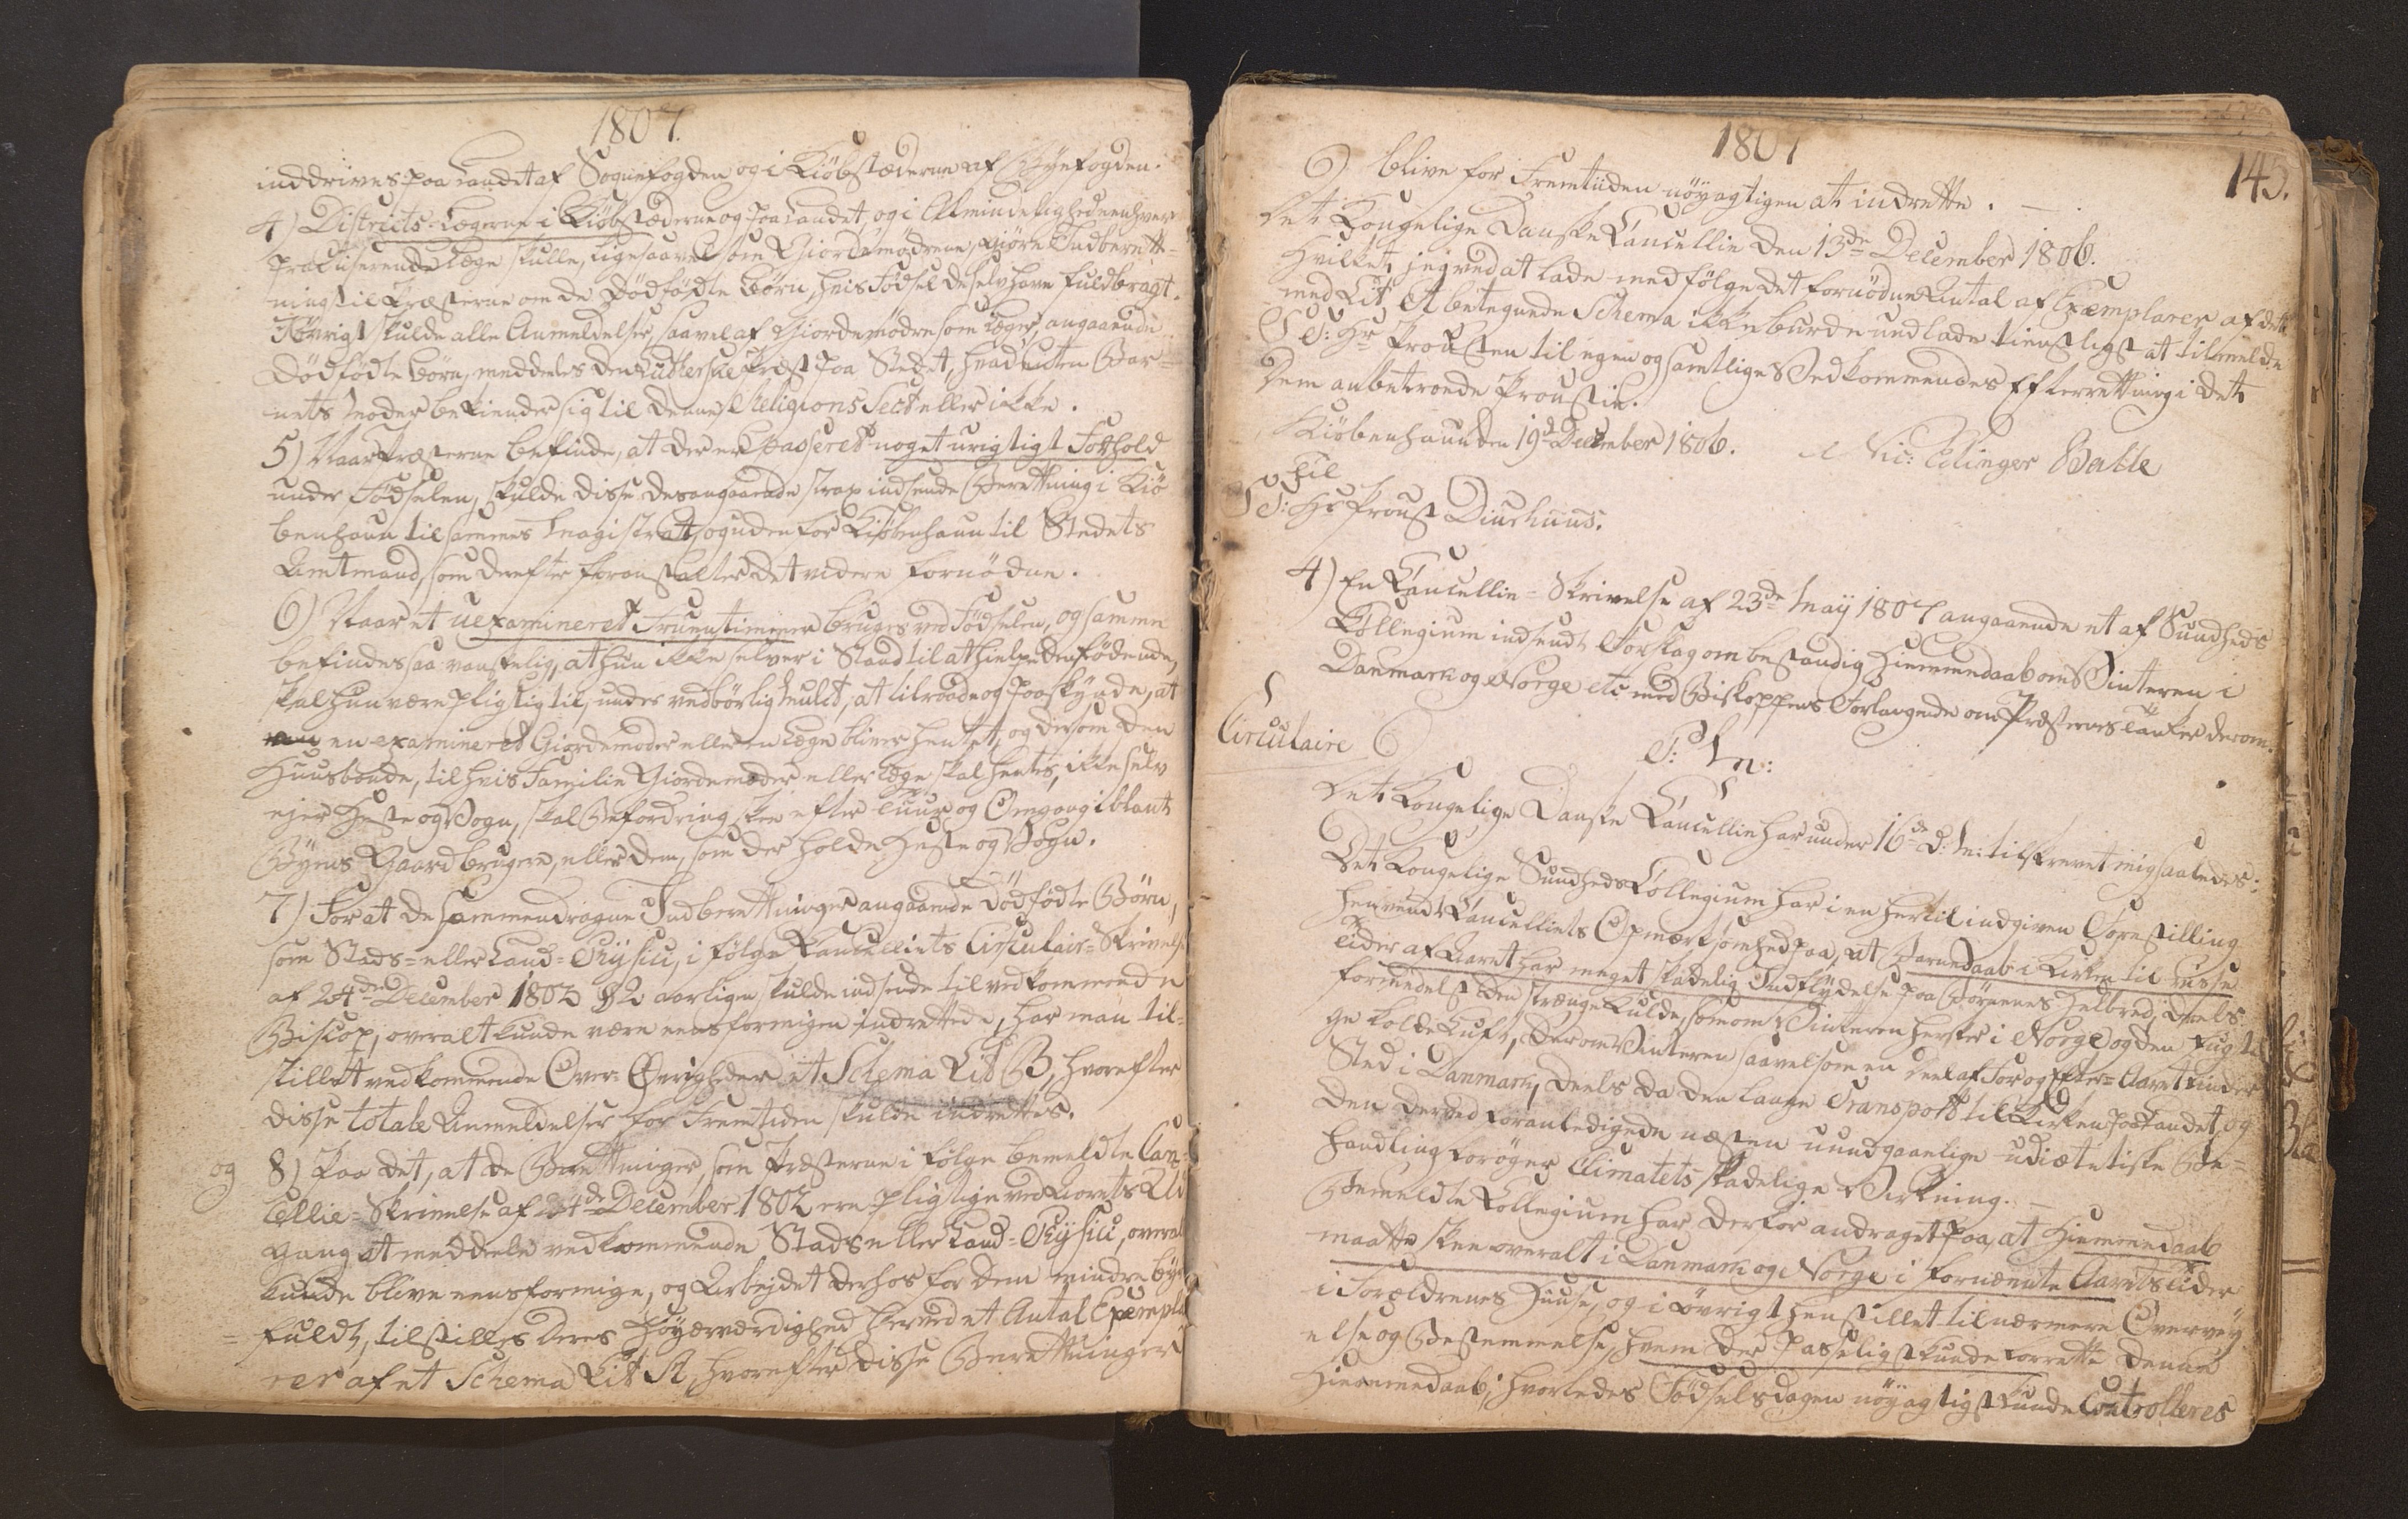 1807.
inddrives paa Landet af Sognefogden og i Kiøbstæderne af Byefogden.
4) Districts-Lægerne i Kiøbstæderne og paa Landet, og i Almindelighed enhver
practiserende Læge skulle, ligesaavel som Giordemødrene, giøre Indberett-
ning til Præsterne om de Dødfødte Børn, hvis Fødsel de selv have fuldbragt.
I øvrigt skulde alle Anmeldelser, saavel af Giordemødre som Læger, angaaende
dødfødte Børn, meddeles den Lutherske Præst paa Stedet, hvad enten Bar-
nets Moder bekiender sig til denne Religions Sect eller ikke.
5) Naar Præsterne befinde, at der er passeret noget urigtigt Forhold
under Fødselen, skulde disse desangaaende strax indsende Berettning i Kiø
benhavn til sammes Magistrat, og uden for Kiøbenhavn til Stedets
Amtmand, som derefter foranstalter det videre fornødne.
6) Naar et uexamineret Fruentimmer bruges ved Fødselen, og samme
befindes saa vanskelig, at hun ikke selv er i Stand til at hielpe den fødende,
skal hun være pligtig til, under vedbørlig Mulct, at tilraade og paaskynde, at
en examineret Giordemoder eller en Læge bliver hentet, og dersom den
Huusbonde, til hvis Familie Giordemoder eller Læge skal hentes, ikke selv
ejer Heste og Vogn, skal Befordring skee efter Tuur og Omgang iblant
Byens Gaardbrugere, eller dem, som der holde Heste og Vogn.
7) For at de sammendragne Indberettninger angaaende dødfødte Børn,
som Stads- eller Land-Physici, i følge Cancelliets Circulair-Skrivelse
af 24de December 1802 § 2 aarligen skulde indsende til vedkommende
Biscop, overalt kunde være eensformigen indrettede, har man til-
stillet vedkommende Over-Øvrigheder et Schema Lit B, hvorefter
disse totale Anmeldelser for Fremtiden skulde indrettes.
og 8) Paa det, at de Berettninger, som Præsterne i følge bemeldte Can-
cellie-Skrivelse af 24de December 1802 ere pligtige ved Aarets Ud
gang at meddele vedkommende Stads eller Land-Physici, overalt
kunde blive eensformige, og Arbejdet derhos for dem mindre byr
fuldt, tilstilles Deres Høyærværdighed herved et Antal Exempla
rer af et Schema Lit A, hvorefter disse Berettninger
1807
145.
blive for Fremtiden nøyagtigen at indrette. —
Det Kongelige Danske Cancellie den 13de December 1806.
Hvilket jeg ved at lade medfølge det fornødne Antal af Exemplarer af dette
med Lit A betegnede Schema ikke burde undlade tienstligst at tilmelde
S: T: Hr Provsten til egen og samtlige Vedkommendes Efterretning i det
Dem anbetroede Provstie.
Kiøbenhavn den 19d December 1806. Nic: Edinger Balle
Til
S: T: Hr Provst Diurhuus.
4) En Cancellie-Skrivelse af 23de May 1807 angaaende et af Sundheds
Collegium indsendt Forslag om bestandig Hiemmedaab om Vinteren i
Danmark og Norge etc. med Biskoppens Forlangende om Præsternes Tanker derom.
Circulaire
P: M:
Det Kongelige Danske Cancellie har under 16de d: M: tilskrevet mig saaledes:
Det Kongelige Sundheds Collegium har i en hertil indgiven Forestilling
henvendt Cancelliets Opmærksomhed paa, at Barnedaab i Kirken til visse
Tider af Aaret har meget skadelig Indflydelse paa Børnenes Helbred, deels
formedelst den strenge Kulde, som om Vinteren hersker i Norge og den fugti
ge kolde Luft, der om Vinteren saavelsom en Deel af For og Efter-Aaret finder
Sted i Danmark, deels da den lange Transport til Kirken paa Landet, og
den derved foranledigede næsten uundgaaelige udiætetiske Be-
handling forøger Climatets skadelige Virkning. —
Bemeldte Collegium har derfor andraget paa, at Hiemmedaab
maatte skee overalt i Danmark og Norge i fornævnte Aarets Tider
i Forældrenes Huuse, og i øvrigt henstillet til nærmere Overvey
else og Bestemmelse, hvem der passeligst kunde forrette denne
Hiemmedaab; hvorledes Fødselsdagen nøyagtigst kunde Controlleres